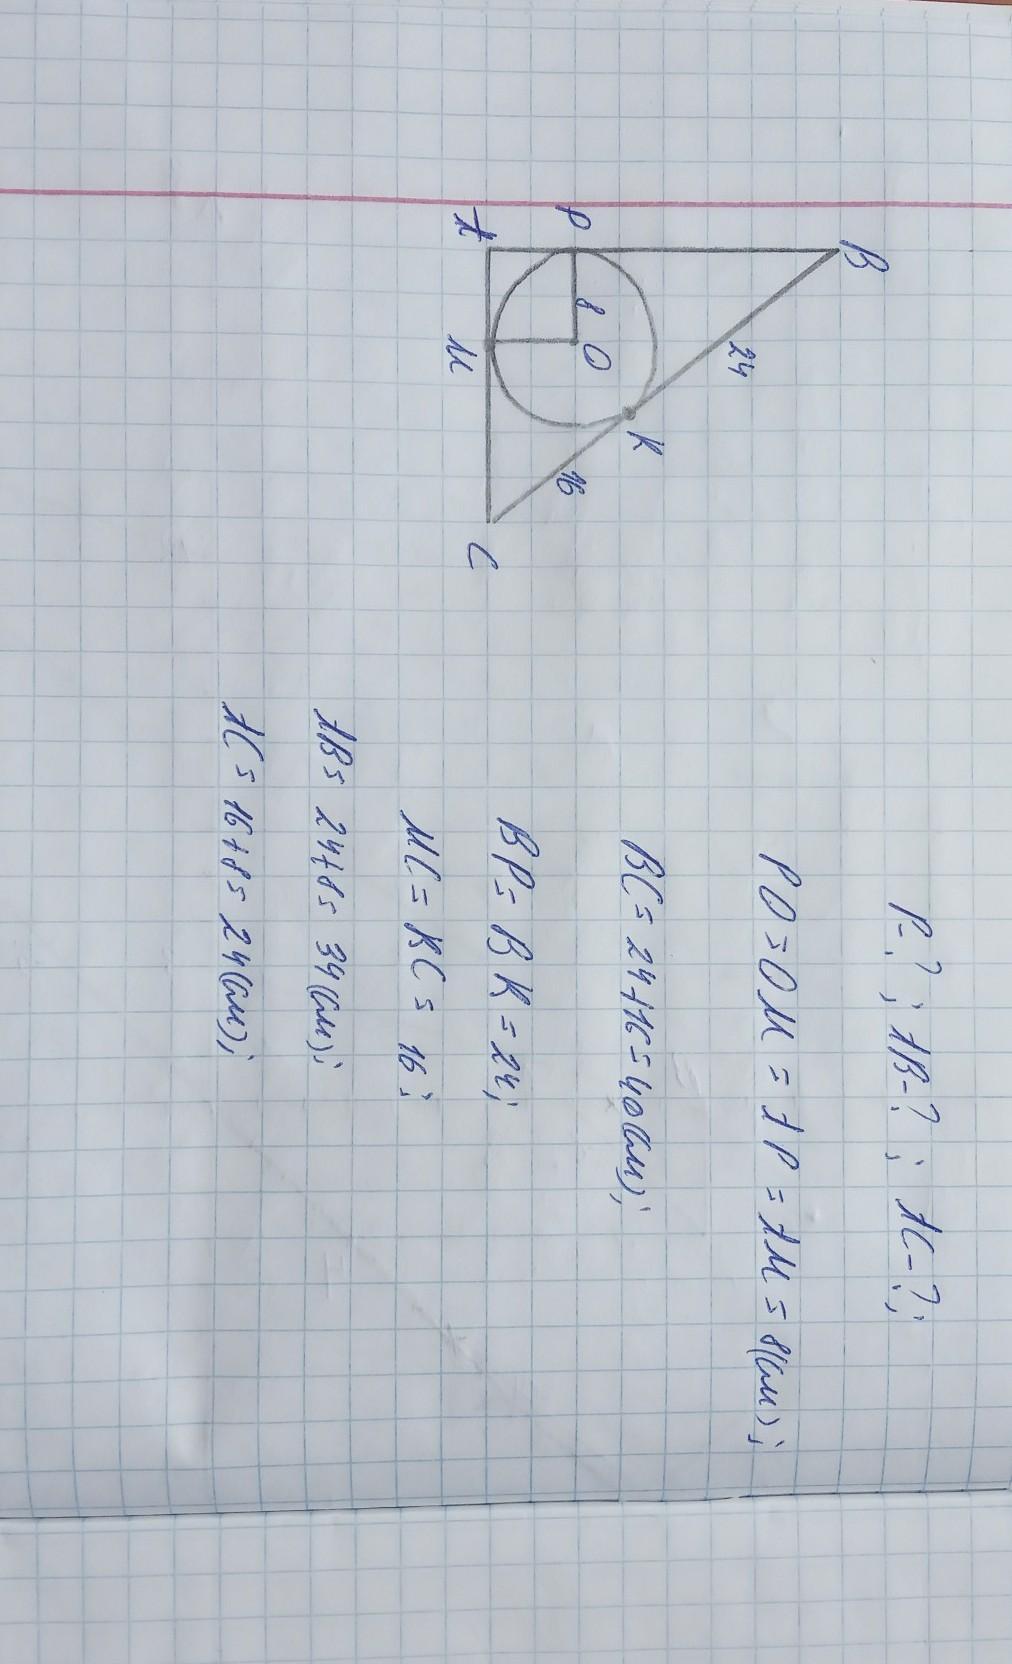 B
24
K
P
8
O
16
A
M
C
P-?; AB-?; AC-?;
PO=OM=AP=AM=8(см);
BC=24+16=40(см);
BP=BK=24;
MC=KC=16;
AB=24+8=34(см);
AC=16+8=24(см);